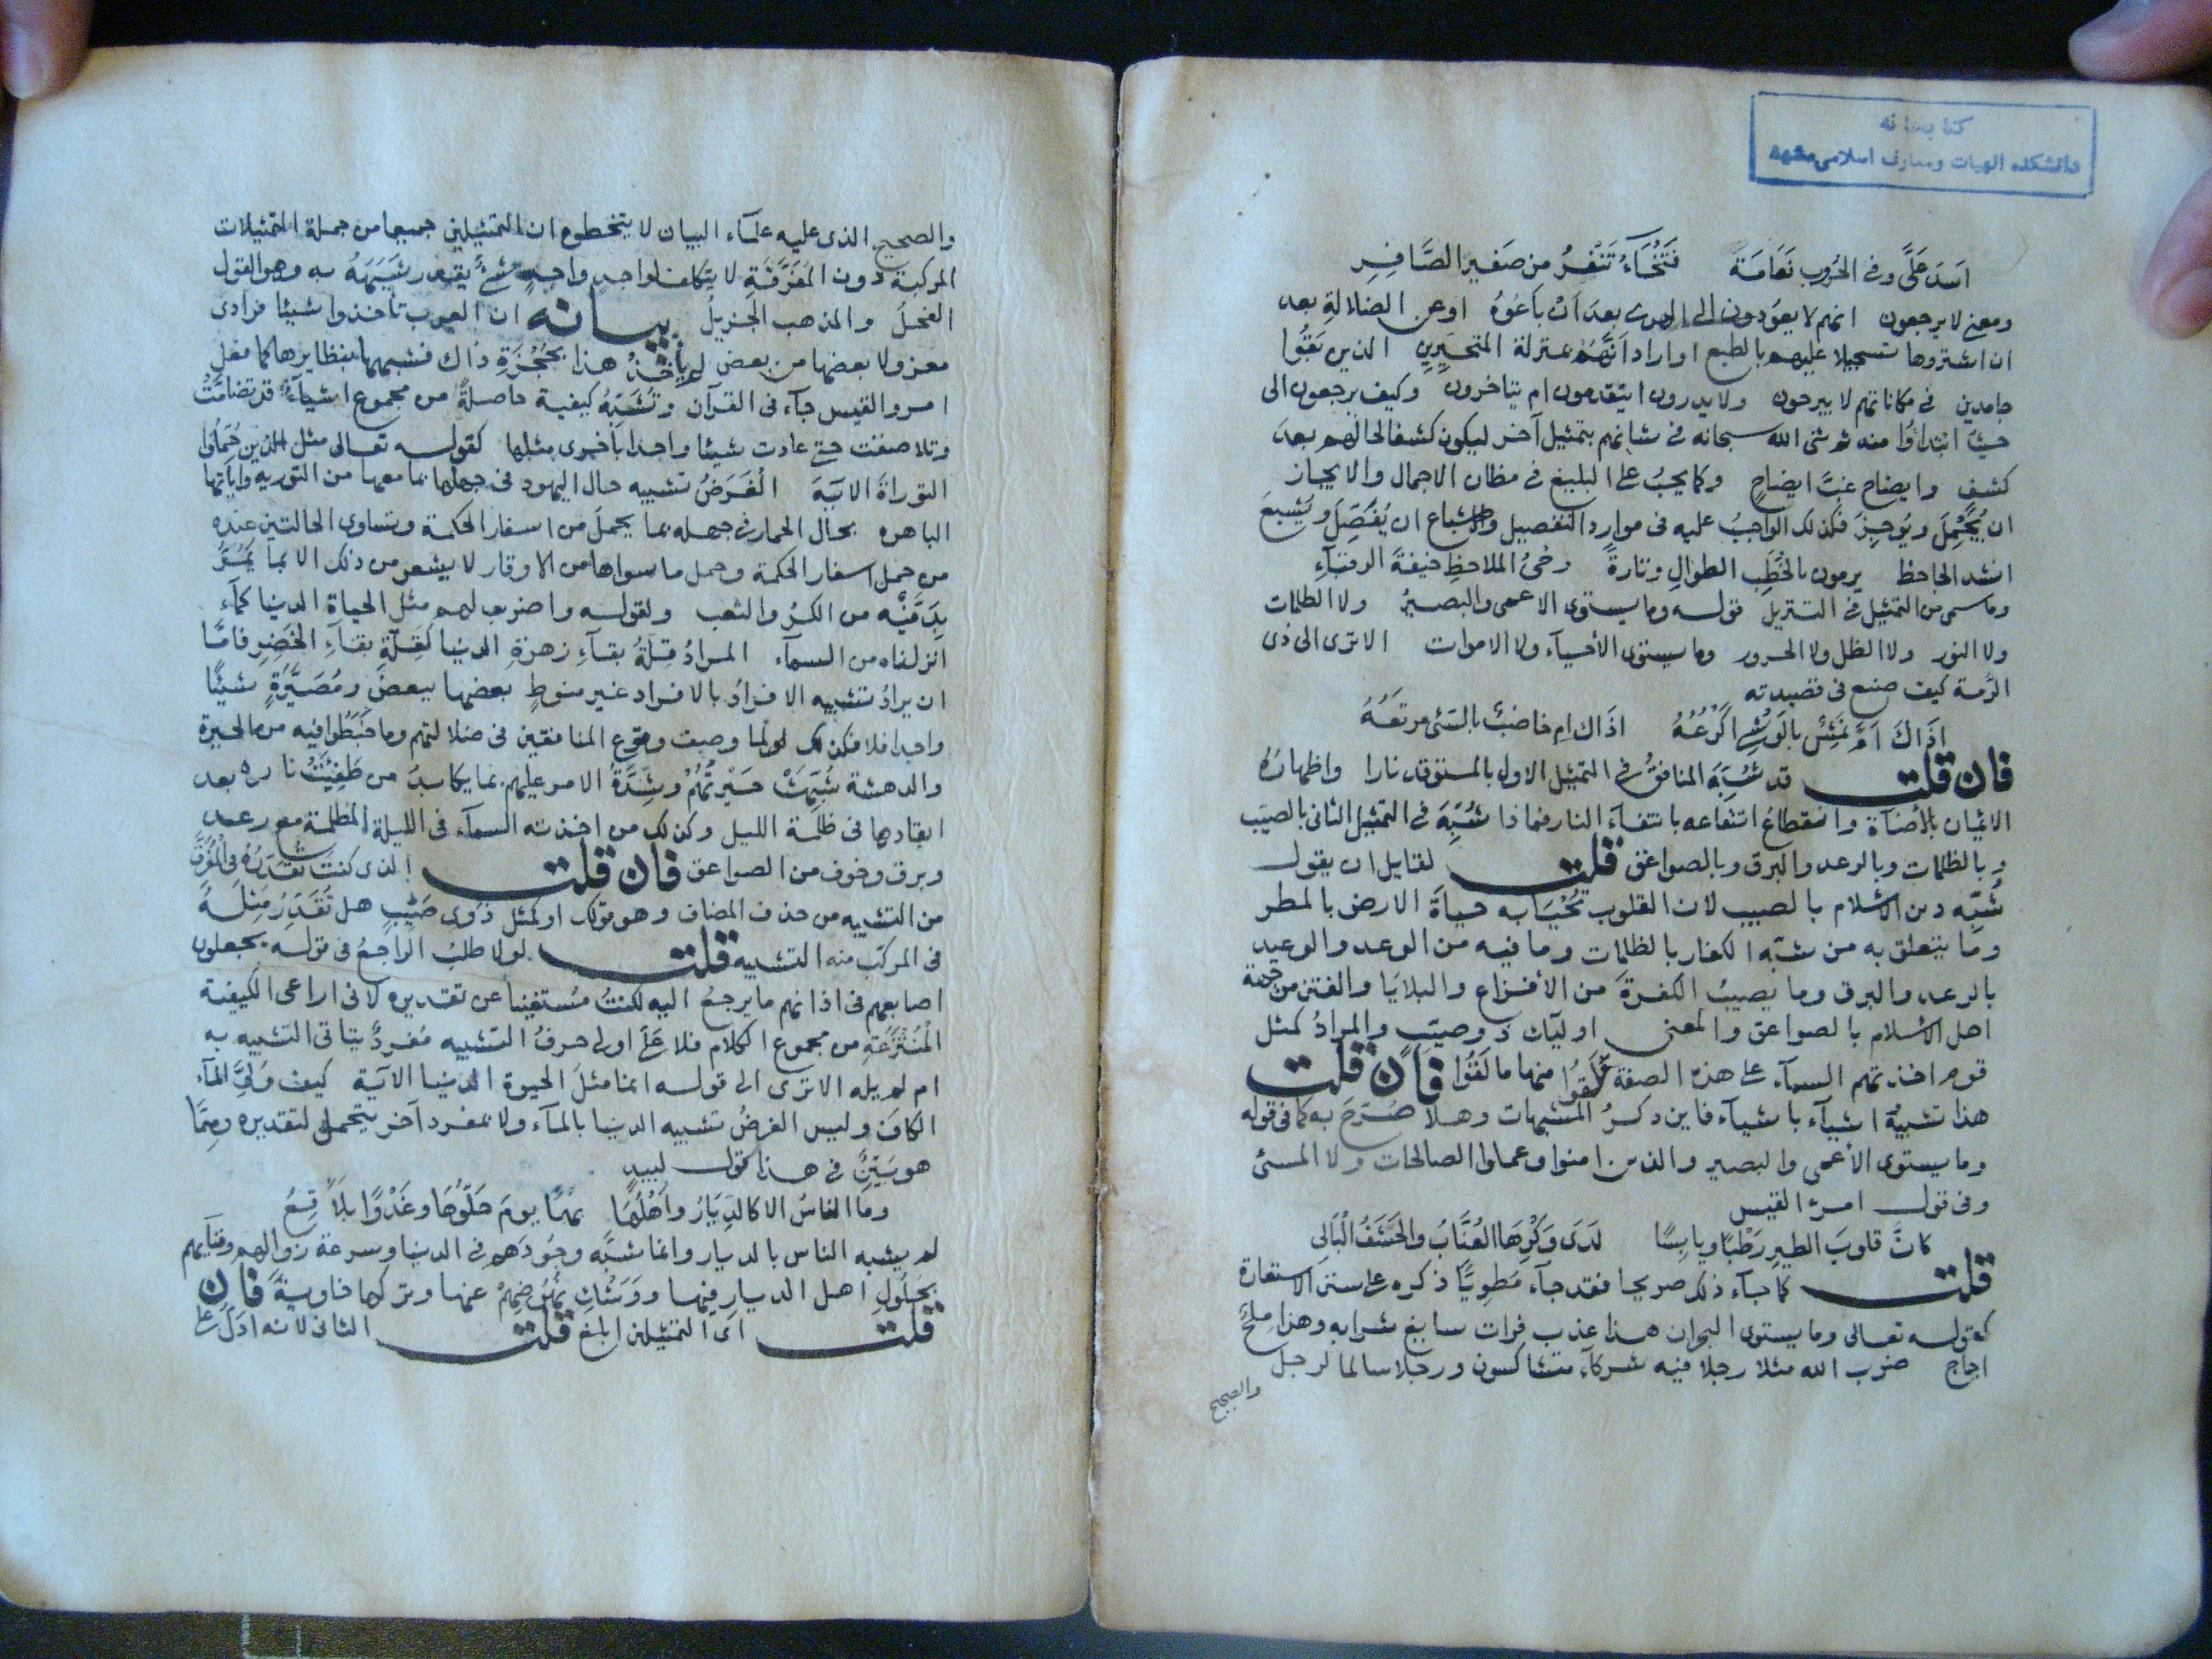 كتابخانه
دانشكده الهيات ومعارف اسلامى مشهد
اسد عَلَىَّ وفى الحُرُوب نَعَامَة فَتْخَآءُ تَنْفِرُ من صَفير الصَّافِرِ
ومعنى لا يرجعون انهم لا يعوَدون الى الهدى بعدَ اَنْ بَاعُوهُ اوعن الضلالةِ بعد
ان اشتروها تسجيلا عليهم بالطبع او اراد اَنَّهُمْ بمنزلة المتحَيِّرِينَ الذين بَقُوا
جامدين فى مكاناتهم لا يبرحون ولا يدرون ايتقدمون ام يتاخرون وكيف يرجعون الى
حيث ابتدأوا منه ثم ثنى الله سبحانه فى شانهم بتمثيل آخر ليكون كشفا لحالهم بعد
كشف وايضاح غبَّ ايضاحٍ وكما يجبُ على البليغ فى مظان الاجمال والايجاز
ان يُجْمِلَ ويُوجِزَ فكذلك الواجبُ عليه فى موارد التفصيل والاشباع ان يُفَصِّلَ ويُشْبِعَ
انشد الجاحظ يرمون بالخُطَبِ الطوالِ وتارةً وحْىُ الملاحِظِ خيفةَ الرقبآءِ
ومما سمى من التمثيل فى التنزيل قوله وما يستوى الاعمى والبصيرُ ولا الظلمات
ولا النور ولا الظل ولا الحرور وما يستوى الأحيآء ولا الاموات الا ترى الى ذى
الرُّمة كيف صنع فى قصيدته
اذَاكَ اَمْ نَمِشٌ بالوَشْىِ اَكْرُعُهُ اذَاك ام خاضبٌ بالسّئ مرتَعُهُ
فان قلت قد شُبِّهَ المنافقُ فى التمثيل الاول بالمستوقد نارا واظهارُهُ
الايمان بالأضآة وانقطاعُ انتفاعه بانتفآء النار فماذا شُبِّهَ فى التمثيل الثانى بالصيّب
وبالظلمات وبالرعد والبرق وبالصواعق قلت لقايل ان يقول
شُبِّه دين الاسْلام بالصيب لان القلوب تُحْيَا به حياةَ الارض بالمطر
وما يتعلق به من شُبَهِ الكفار بالظلمات وما فيه من الوعد والوعيد
بالرعد والبرق وما يُصيبُ الكفرةَ من الأفزاع والبلايَا والفتن من جهة
اهل الاسْلام بالصواعق والمعنى او ليآك ذوِ صيّب والمرادُ كمثل
قوم اخذتهم السمآء على هذه الصفة فَلَقُوا منها ما لَقُوا فان قلت
هذا تشبيهُ اشيآء باشيآء فاين ذكرُ المشبهات وهلا صُرِّحَ به كما فى قوله
وما يستوى الأعمى والبصير والذين امنوا وعملوا الصالحات ولا المسئ
وفى قول امرئ القيس
كانَّ قلوبَ الطيرِ رَطْبًا ويابِسًا لَدَى وَكْرِهَا العُنَّابُ والحَشَفُ الْبَالِى
قلت كما جآء ذلك صريحا فقد جآء مَطوِيًّا ذكره على سنن الاستعارة
كقوله تعالى وما يستوى البحران هذا عذب فرات سايغ شرابه وهذا مِلحٌ
اجاج ضرب الله مثلا رجلا فيه شركآء متشاكسون ورجلا سالما لرجل
والصحيح
والصحيح الذى عليه علمآء البيان لا يتخطونه ان التمثيلين جميعا من جملة التمثيلات
المركبة دون المُفَرَّقَةِ لا يتكلف لواحد واحدٍ شئٌ يقدر شَبَهُهُ به وهو القول
الفحلُ والمذهب الجزيلُ بيانه ان العرب تأخذ اشيئا فرادى
معزولا بعضها من بعض لم يأخذْ هذا بحُجْزَةِ ذاك فتشبهها بنظايرها كما فعل
امرو القيس جآء فى القرآن وتُشَبِّهُ كيفية حاصلةً من مجموع اشيآءَ قد تضامَّتْ
وتلاصقت حتى عادت شيئا واحدا بأخرى مثلها كقوله تعالى مثل الذين حُمِّلُوا
التوراةَ الاتَيةَ الْغَرَضُ تشبيه حال اليهود فى جهلها بما معها من التورية واياتها
الباهرة بحال الحمار فى جهله بما يحملُ من اسفار الحكمة وتساوى الحالتين عنده
من حمل اسفار الحكمة وحمل ما سواها من الاوقار لا يشعر من ذلك الا بما يَمُرُّ
بِدَفَّيْهِ من الكَدِّ والتعب وكقوله واضرب لهم مثل الحياة الدنيا كمآء
انزلناه من السمآء المرادُ قِلةُ بقآءِ زهرةِ الدنيا كَقِلَّةِ بقآءِ الخَضِرِ فامَّا
ان يرادُ تشبيه الافرادُ بالافراد غير منوطٍ بعضها ببعض ومُصَيَّرَةٍ شيئًا
واحدا فلا فكذلك لما وصف وقوع المنافقين فى ضلالتهم وما خَبَطُوا فيه من الحيرة
والدهشة شُبِّهَتْ حَيْرتُهُمْ وشِدَّةُ الامر عليهم بما يكابدُ من طَفِئَتْ ناره بعد
ايقادها فى ظلمة الليل وكذلك من اخذته السمآء فى الليلة المظلمة مع رعد
وبرق وخوف من الصواعق فان قلت الذى كنت تقدّرُهُ فى المُفَرَّقِ
من التشبيه من حذف المضاف وهو قولك او كمثل ذَوِى صَيِّبٍ هل تُقَدِّرُ مِثْلَهُ
فى المركّب منه التشبيه قلت لولا طلبُ الراجعُ فى قوله يجعلون
اصابعهم فى اذانهم ما يرجعُ اليه لكنتُ مُستغنيا عن تقديره لانى اراعى الكيفية
الْمُنْتَزَعَةَ من مجموع الكلام فلا عَلَىَّ اولى حرفُ التشبيه مُفردٌ يتاتى التشبيه به
ام لم يله الا ترى الى قوله انما مثلُ الحيوة الدنيا الآية كيف وَلِىَ المآءَ
الكافُ وليس الغرضُ تشبيه الدنيا بالمآء ولا بمفرد آخر يتحمل لتقديره ومِمَّا
هو بَيِّنٌ فى هذا قول لبيدٍ
ومَا الناسُ الا كالدِّيَارُ واَهْلُهَا بِهَا يومَ حَلُّوهَا وغَدْوًا بَلَاقِعُ
لم يشبه الناس بالديار وانما شبَّه وجُودَهم فى الدنيا وسرعة زوالهم وفنآيهم
بحُلُولِ اهل الديارِ فيها ووَشْكِ نُهُوضِهِمْ عنها وتركها خاويةً فان
قلت اى التمثيلين ابلغ قلت الثانى لانه ادلّ على